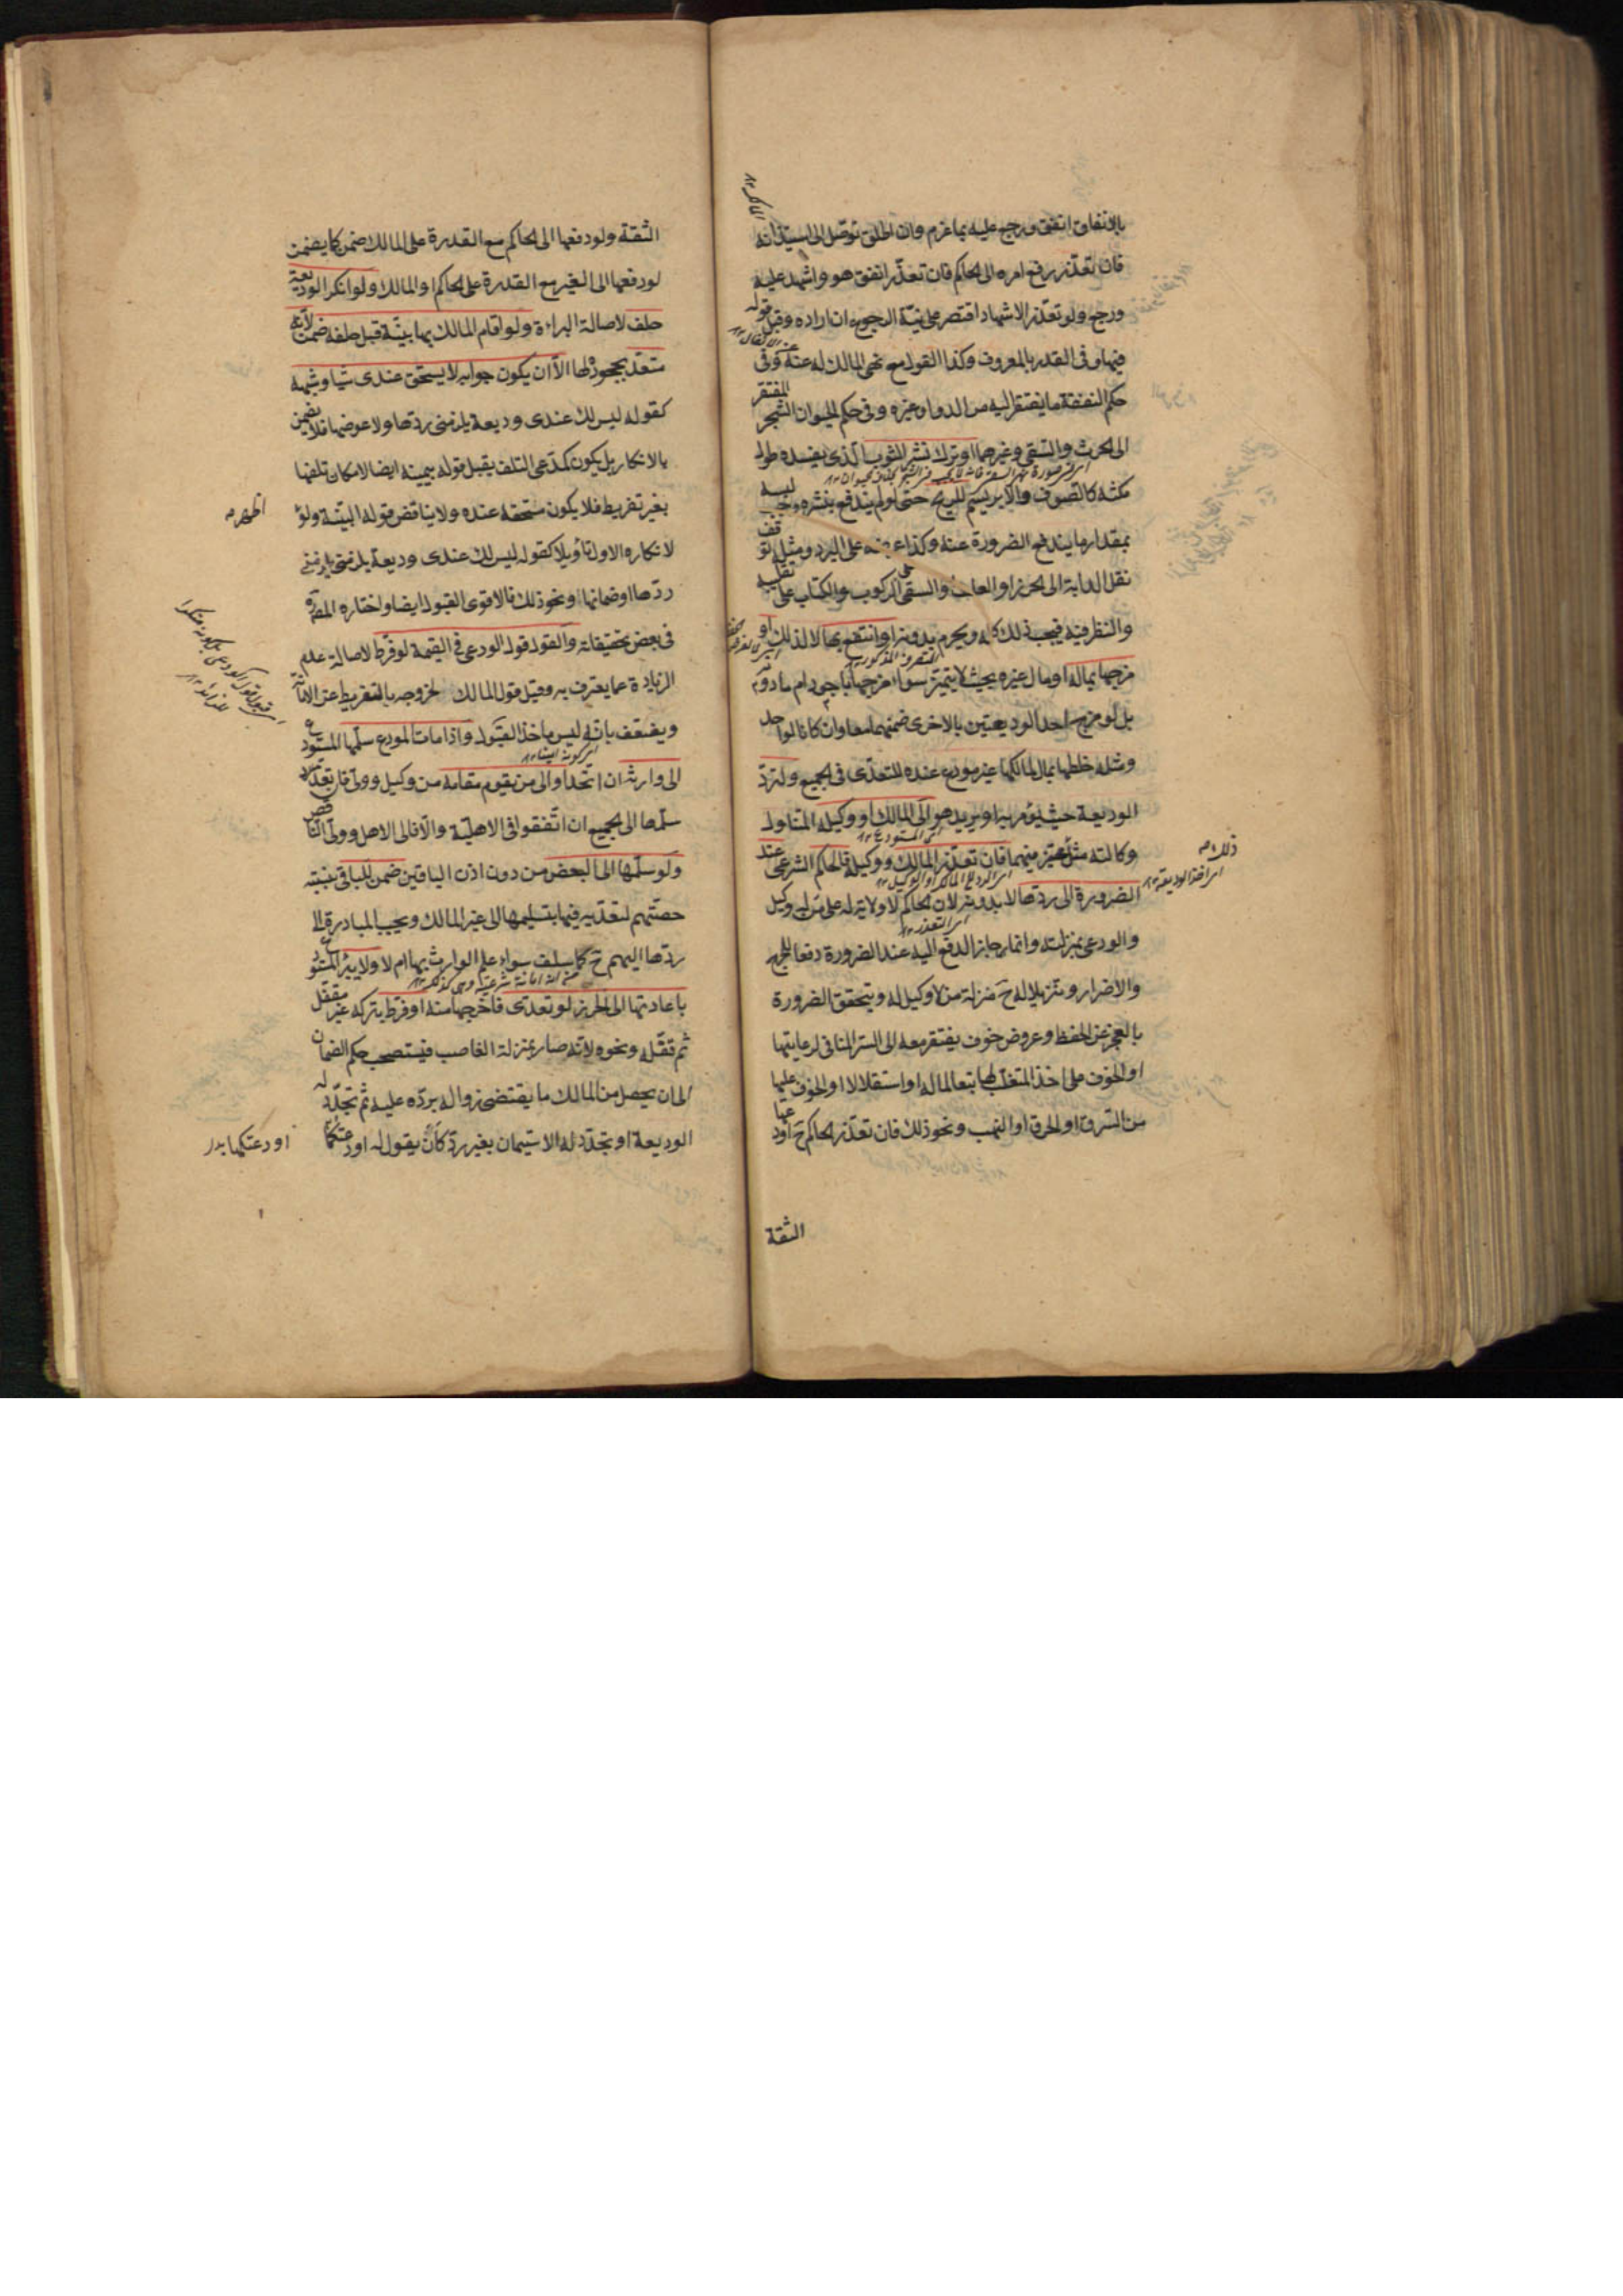 بالانفاق انفق ورجع عليه بما غرم وان اطلق توصّل الى استيذانه
فان تعذّر رفع امره الى الحاكم فان تعذّر انفق هو واشهد عليه
ورجع ولو تعذّر الاشهاد اقتصر على نيّة الرجوع ان اراده وقبل قوله
فيها وفى القدر بالمعروف وكذا القول مع نهى المالك له عنه وفى
حكم النفقة ما يفتقر اليه من الدواء وغيره وفى حكم الحيوان الشجر المفتقر
الى الحرث والسقى وغيرهما او ترك نشر الثوب الذى يفسده طول
مكثه كالصوف والابريسم للريح حتى لو لم يندفع بنشره وجب لبسه
بمقدار ما يندفع الضرورة عنه وكذا عرضه على البرد ومثله توقف
نقل الدابة الى الحرز او العلف والسقى على الركوب والكتاب على تقليبه
والنظر فيه فيجب ذلك كله ويحرم بدونه او انتفع بها لا لذلك او
مزجها بماله او مال غيره بحيث لا يتميّز سواء مزجها باجود ام ما دونه
بل لو مزج احد الوديعتين بالاخرى ضمنهما معا وان كانا لواحد
ومثله خلطها بمال لمالكها غير مودع عنده للتعدّى فى الجميع ولتردّ
الوديعة حيث يؤمر به او يريد هو الى المالك او وكيله المتناول
وكالته مثل ذلك مخيّر فيهما فان تعذّر المالك او وكيله فالحاكم الشرعى عند
الضرورة الى ردّها لا بدونه لان الحاكم لا ولاية له على من له وكيل
والودعى بمنزلته وانما جاز الدفع اليه عند الضرورة دفعا للحرج
والاضرار وتنزيلا له ح منزلة من لا وكيل له ويتحقق الضرورة
بالعجز عن الحفظ وعروض خوف يفتقر معه الى الستر المنافى لرعايتها
او الخوف على اخذ المتغلّب لها تبعا لماله او استقلالا او الخوف عليها
من السرق او الحرق او النهب ونحو ذلك فان تعذّر الحاكم ح اودعها
الثقة
الثقة ولو دفعها الى الحاكم مع القدرة على المالك ضمن كما يضمن
لو دفعها الى الغير مع القدرة على الحاكم او المالك ولو انكر الوديعة
حلف لاصالة البراءة ولو اقام المالك بها بيّنة قبل حلفه ضمن لانه
متعدّ بجحوده لها الّا ان يكون جوابه لا يستحق عندى شيئا وشبهه
كقوله ليس لك عندى وديعة يلزمنى ردّها ولا عوضها فلا يضمن
بالانكار بل يكون كمدّعى التلف يقبل قوله بيمينه ايضا لامكان تلفها
بغير تفريط فلا يكون مستحقه عنده ولا يناقض قوله البيّنة ولو
اظهر
لانكاره الاول تأويلا كقوله ليس لك عندى وديعة يلزمنى
ردّها او ضمانها ونحو ذلك فالاقوى القبول ايضا واختاره المص ره
فى بعض تحقيقاته والقول قول الودعى فى القيمة لو فرط لاصالة عدم
الزيادة عما يعترف به وقيل قول المالك لخروجه بالتفريط عن الامانة
ويضعف بانه ليس مأخذ القبول واذا مات المودع سلّمها المستودع
الى وارثه ان اتّحد او الى من يقوم مقامه من وكيل وولى فان تعدّد
سلّمها الى الجميع ان اتّفقوا فى الاهليّة والّا فالى الاهل وولى الناقص
ولو سلّمها الى البعض من دون اذن الباقين ضمن للباقى بنسبة
حصّتهم لتعدّيه فيها بتسليمها الى غير المالك ويجب المبادرة الى
ردّها اليهم ح كما سلف سواء علم الوارث بها ام لا ولا يبرأ المستودع
باعادتها الى الحرز لو تعدّى فاخرجها منه او فرط بتركه غير مقفل
ثم قفّله ونحوه لانه صار بمنزلة الغاصب فيستصحب حكم الضمان
الى ان يحصل من المالك ما يقتضى زواله بردّه عليه ثم تجدّد له
الوديعة او تجدّد له الاستيمان بغير ردّ كأن يقول له اودعتكها
اودعتكها بدر